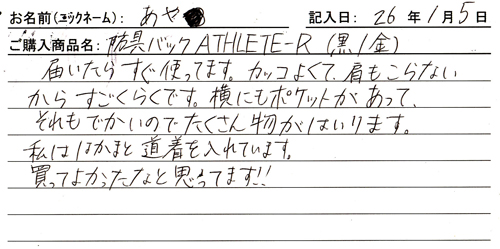 お名前(ニックネーム): あや
記入日: 26年1月5日
ご購入商品名: 防具バックATHLETE-R(黒/金)
届いたらすぐ使ってます。カッコよくて、肩もこらない
からすごくらくです。横にもポケットがあって、
それもでかいのでたくさん物がはいります。
私ははかまと道着を入れています。
買ってよかったなと思ってます!!